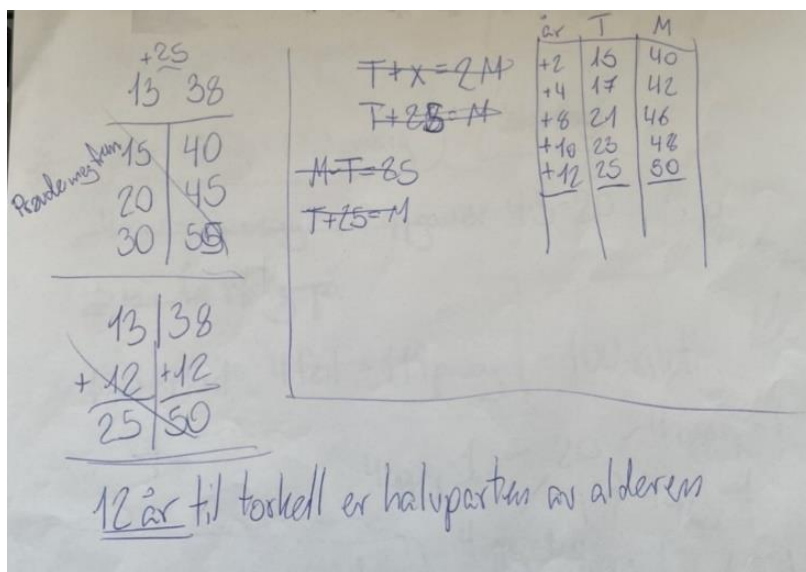 +25
13 38
15 | 40
20 | 45
30 | 55
13 | 38
+ 12 | +12
25 | 50
T+x=2M
T+25=M
M-T=25
T+25=M
år | T | M
+2 | 15 | 40
+4 | 17 | 42
+8 | 21 | 46
+10 | 23 | 48
+12 | 25 | 50
12 år til torkell er halvparten av alderen